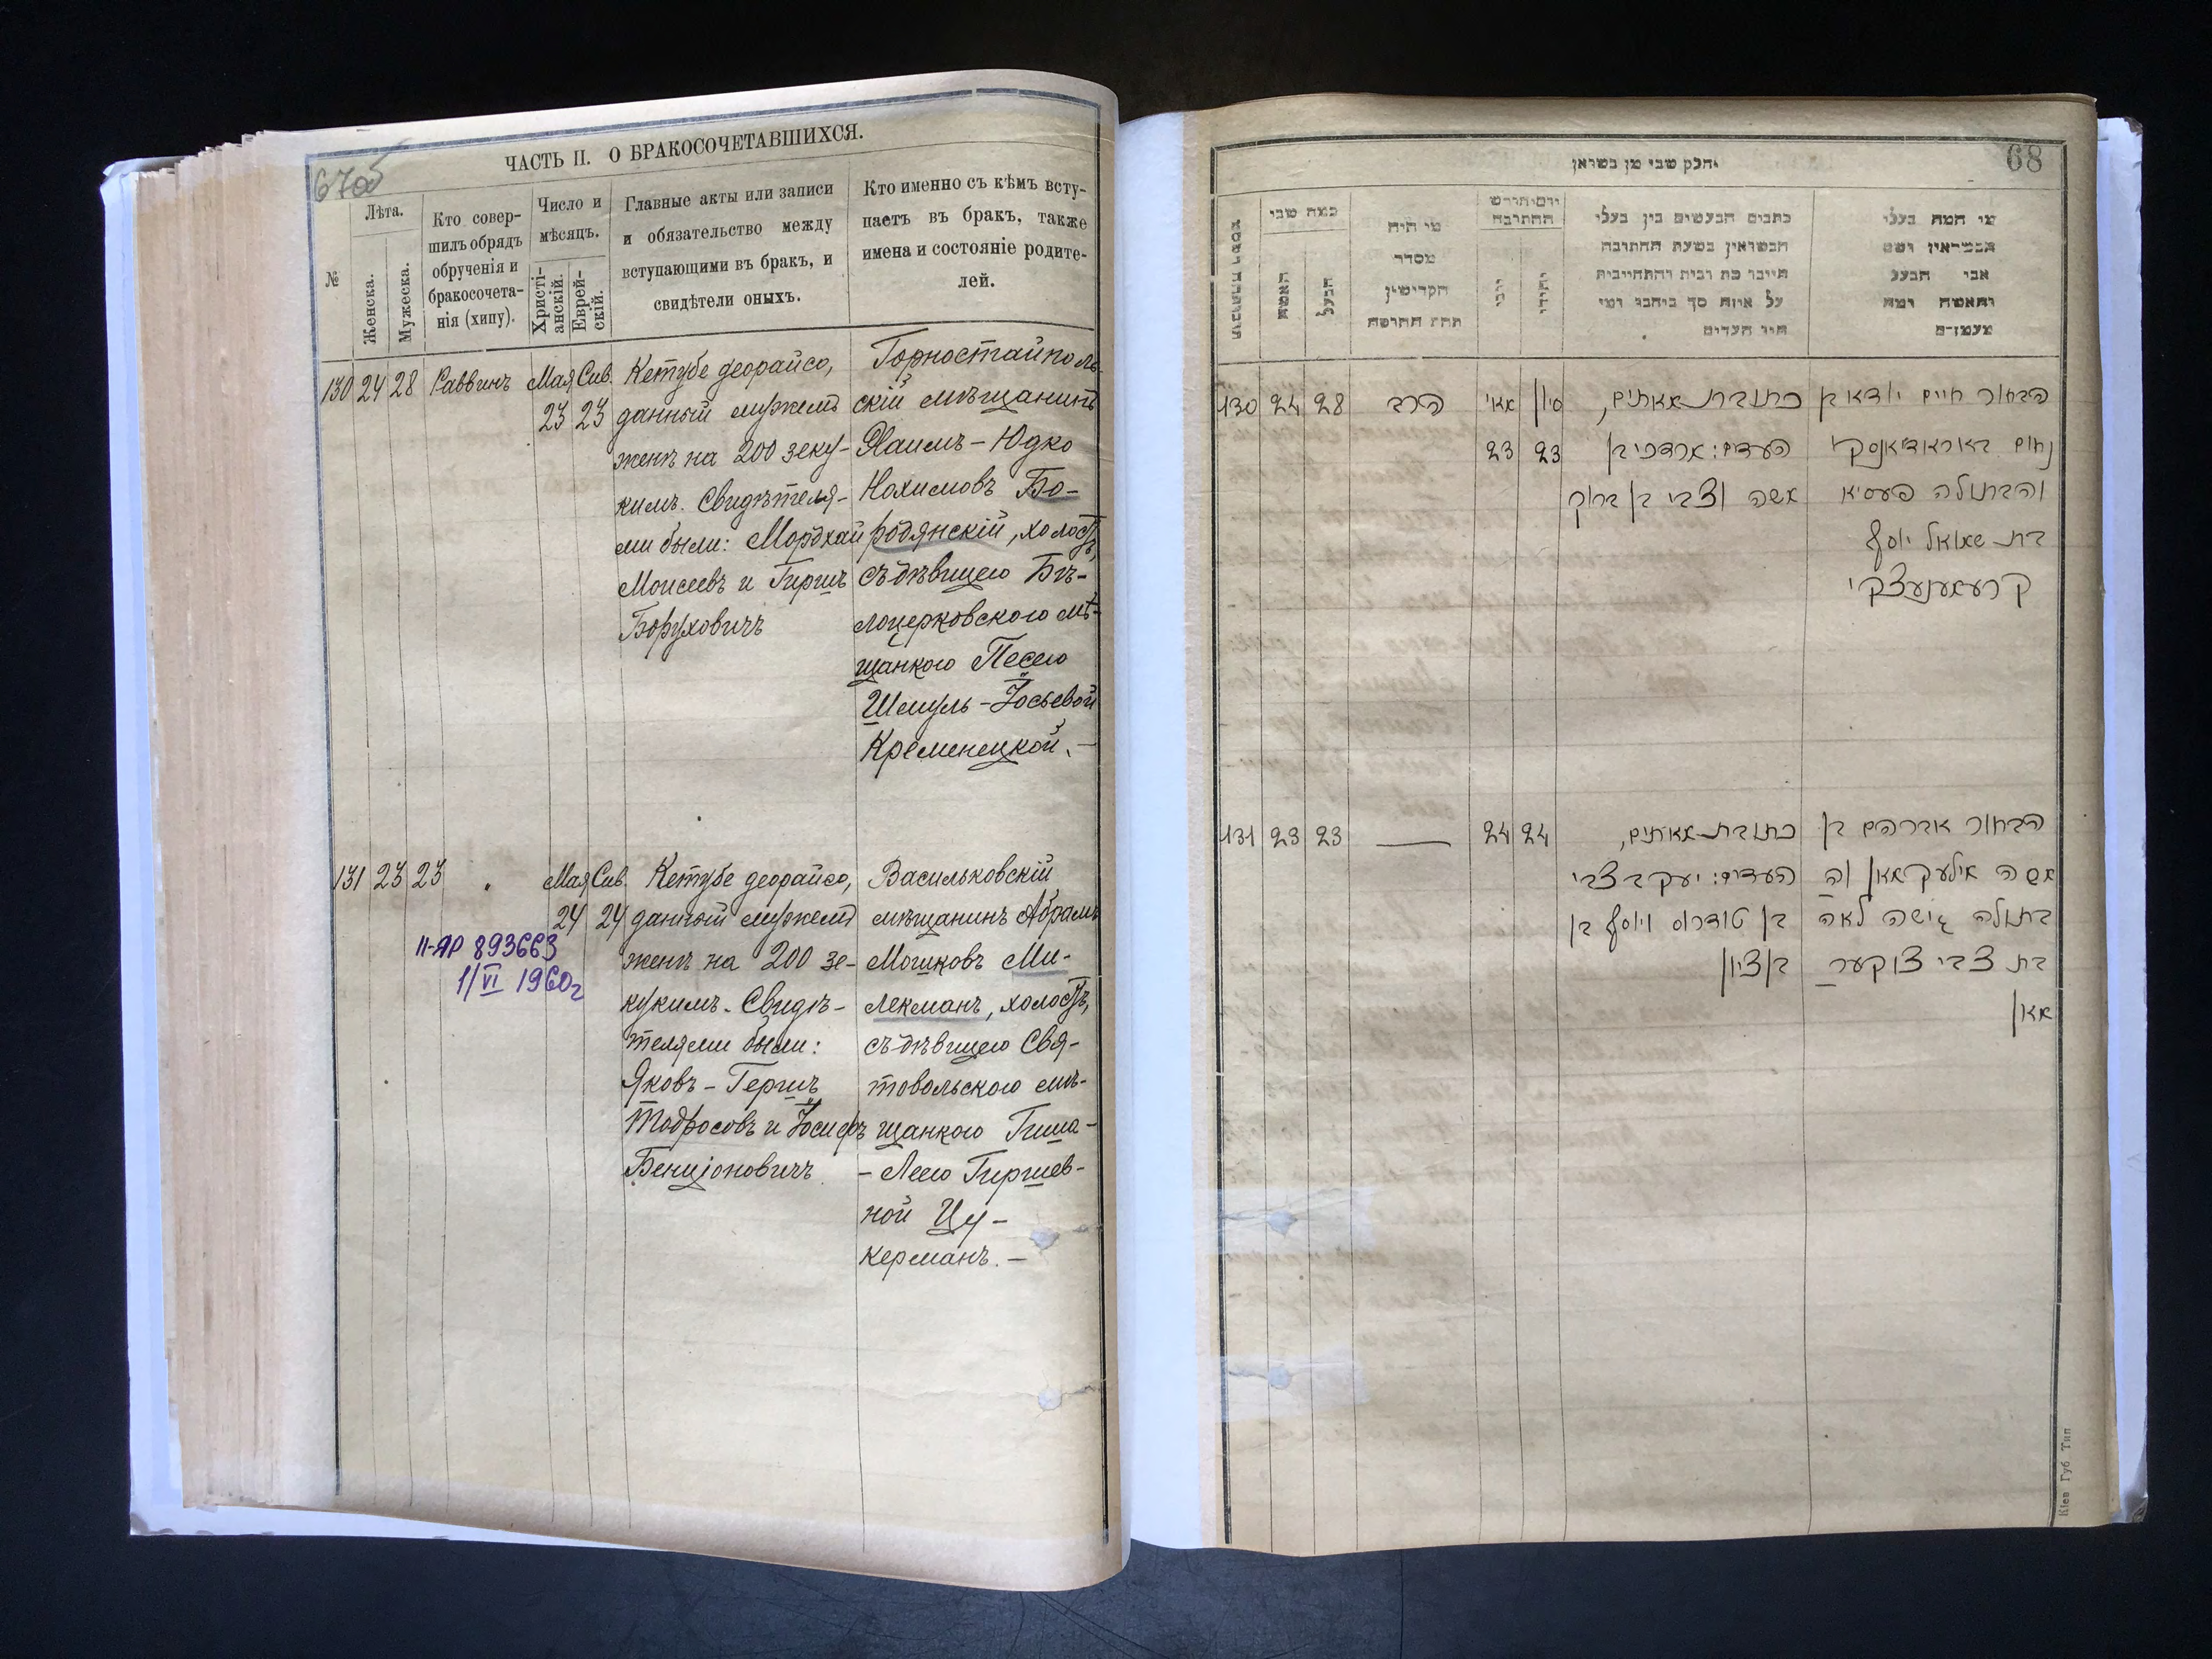 ЧАСТЬ II. О БРАКОСОЧЕТАВШИХСЯ.
№
Лѣта.
Женска.
Мужеска.
Кто совер-
шилъ обрядъ
обрученія и
бракосочета-
нія (хипу).
Число и
мѣсяцъ.
Христі-
анскій.
Еврей-
скій.
Главные акты или записи
и обязательство между
вступающими въ бракъ, и
свидѣтели оныхъ.
Кто именно съ кѣмъ всту-
паетъ въ бракъ, также
имена и состояніе родите-
лей.
130 24 28 Раввинъ Мая Сив.
23 23
Кетубе деорайсо,
данный мужемъ
женѣ на 200 зеку-
кимъ. Свидѣтеля-
ми были: Мордхай
Моисеевъ и Гиршъ
Боруховичъ
Горностайполь-
скій мѣщанинъ
Хаимъ-Юдко
Нохимовъ Бо-
родянскій, холостъ,
съ дѣвицею Бѣ-
лоцерковскою мѣ-
щанкою Песею
Шмуль-Іосьевой
Кременецкой.-
131 23 23 " Мая Сив.
24 24
II-ЯР 893663
1/VI 1960г
Кетубе деорайсо,
данный мужемъ
женѣ на 200 зе-
кукимъ. Свидѣ-
телями были:
Яковъ-Гершъ
Тодросовъ и Іосифъ
Бенціоновичъ
Васильковскій
мѣщанинъ Абрамъ
Мошковъ Ми-
лекманъ, холостъ,
съ дѣвицею Свя-
товольскою мѣ-
щанкою Гиша-
-Леею Гиршев-
ной Цу-
керманъ.-
68
וחלק שני מן נשואין
כמה שני
האשה
הבעל
מי היה
מסדר
הקדושין
תחת החופה
יום וחודש
החתונה
נוצרי
יהודי
כתבים הנעשים בין בעלי
הנשואין בשעת החתונה
חיובי כח ובית והתחייבות
על איזה סך ביניהם ומי
היו העדים
מי המה בעלי
הנשואין ושם
אבי הבעל
והאשה ומה
מעמדם
130 24 28 הרב מאי סיון
23 23
כתובת מאתים,
העדים: מרדכי בן
משה וצבי בן ברוך
הבחור חיים יודא בן
נחום באראדיאנסקי
והבתולה פעסיא
בת שמואל יוסף
קרעמענעצקי
131 23 23 — 24 24
כתובת מאתים,
העדים: יעקב צבי
בן טודרוס ויוסף בן
בן ציון
הבחור אברהם בן
משה מילעקמאן וה
בתולה גישה לאה
בת צבי צוקער
מאן
Кіев Губ Тип